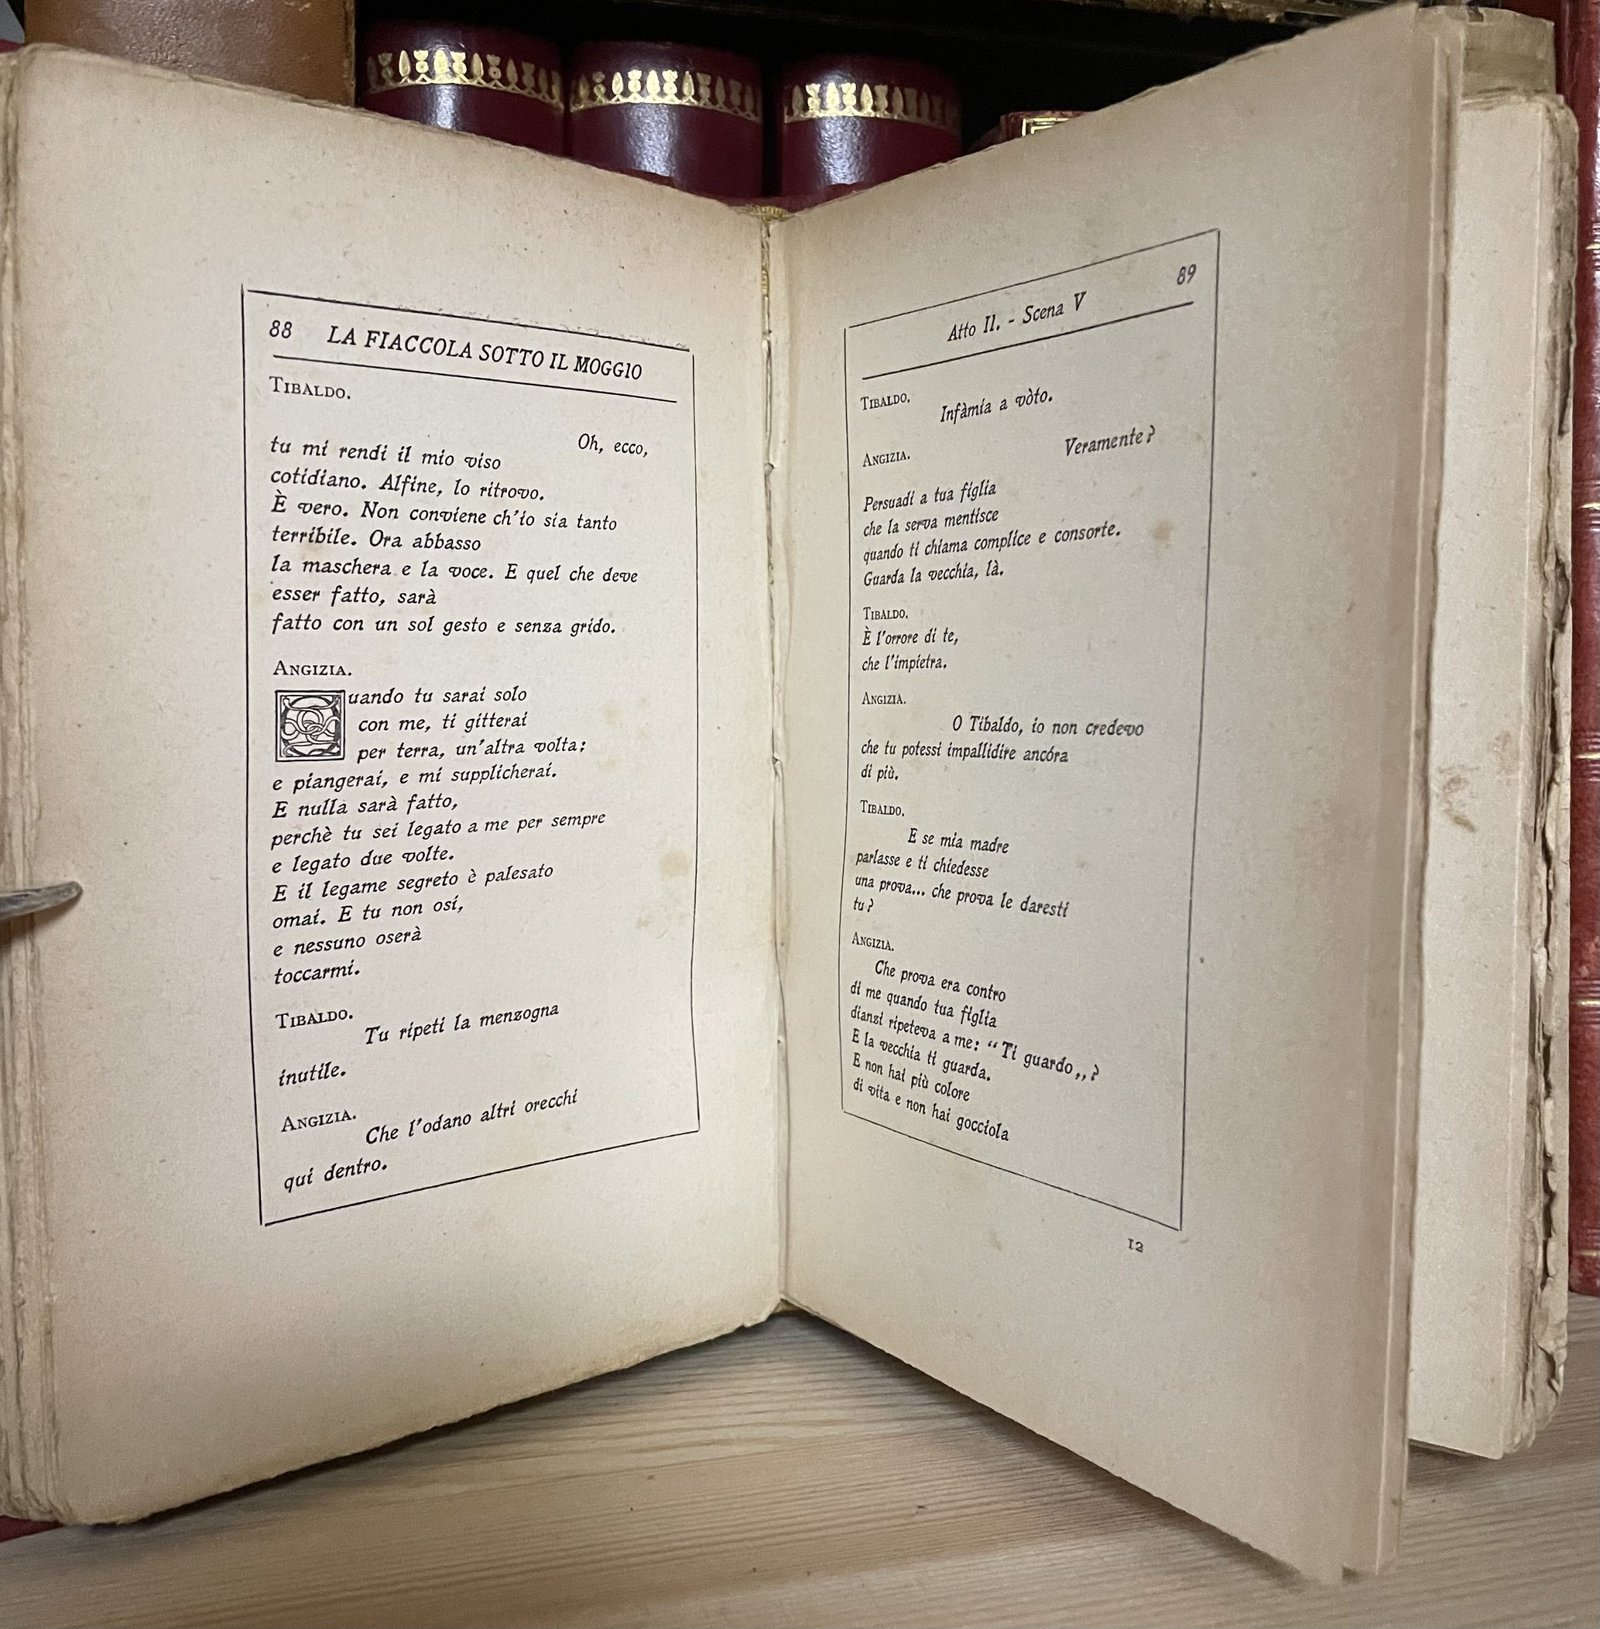 88 LA FIACCOLA SOTTO IL MOGGIO
TIBALDO.
Oh, ecco,
tu mi rendi il mio viso
cotidiano. Alfine, lo ritrovo.
È vero. Non conviene ch'io sia tanto
terribile. Ora abbasso
la maschera e la voce. E quel che deve
esser fatto, sarà
fatto con un sol gesto e senza grido.
ANGIZIA.
Quando tu sarai solo
con me, ti gitterai
per terra, un'altra volta;
e piangerai, e mi supplicherai.
E nulla sarà fatto,
perchè tu sei legato a me per sempre
e legato due volte.
E il legame segreto è palesato
omai. E tu non osi,
e nessuno oserà
toccarmi.
TIBALDO.
Tu ripeti la menzogna
inutile.
ANGIZIA.
Che l'odano altri orecchi
qui dentro.
Atto II. - Scena V 89
TIBALDO.
Infàmia a vòto.
ANGIZIA.
Veramente?
Persuadi a tua figlia
che la serva mentisce
quando ti chiama complice e consorte.
Guarda la vecchia, là.
TIBALDO.
È l'orrore di te,
che l'impietra.
ANGIZIA.
O Tibaldo, io non credevo
che tu potessi impallidire ancóra
di più.
TIBALDO.
E se mia madre
parlasse e ti chiedesse
una prova... che prova le daresti
tu?
ANGIZIA.
Che prova era contro
di me quando tua figlia
dianzi ripeteva a me: “Ti guardo„?
E la vecchia ti guarda.
E non hai più colore
di vita e non hai gocciola
12